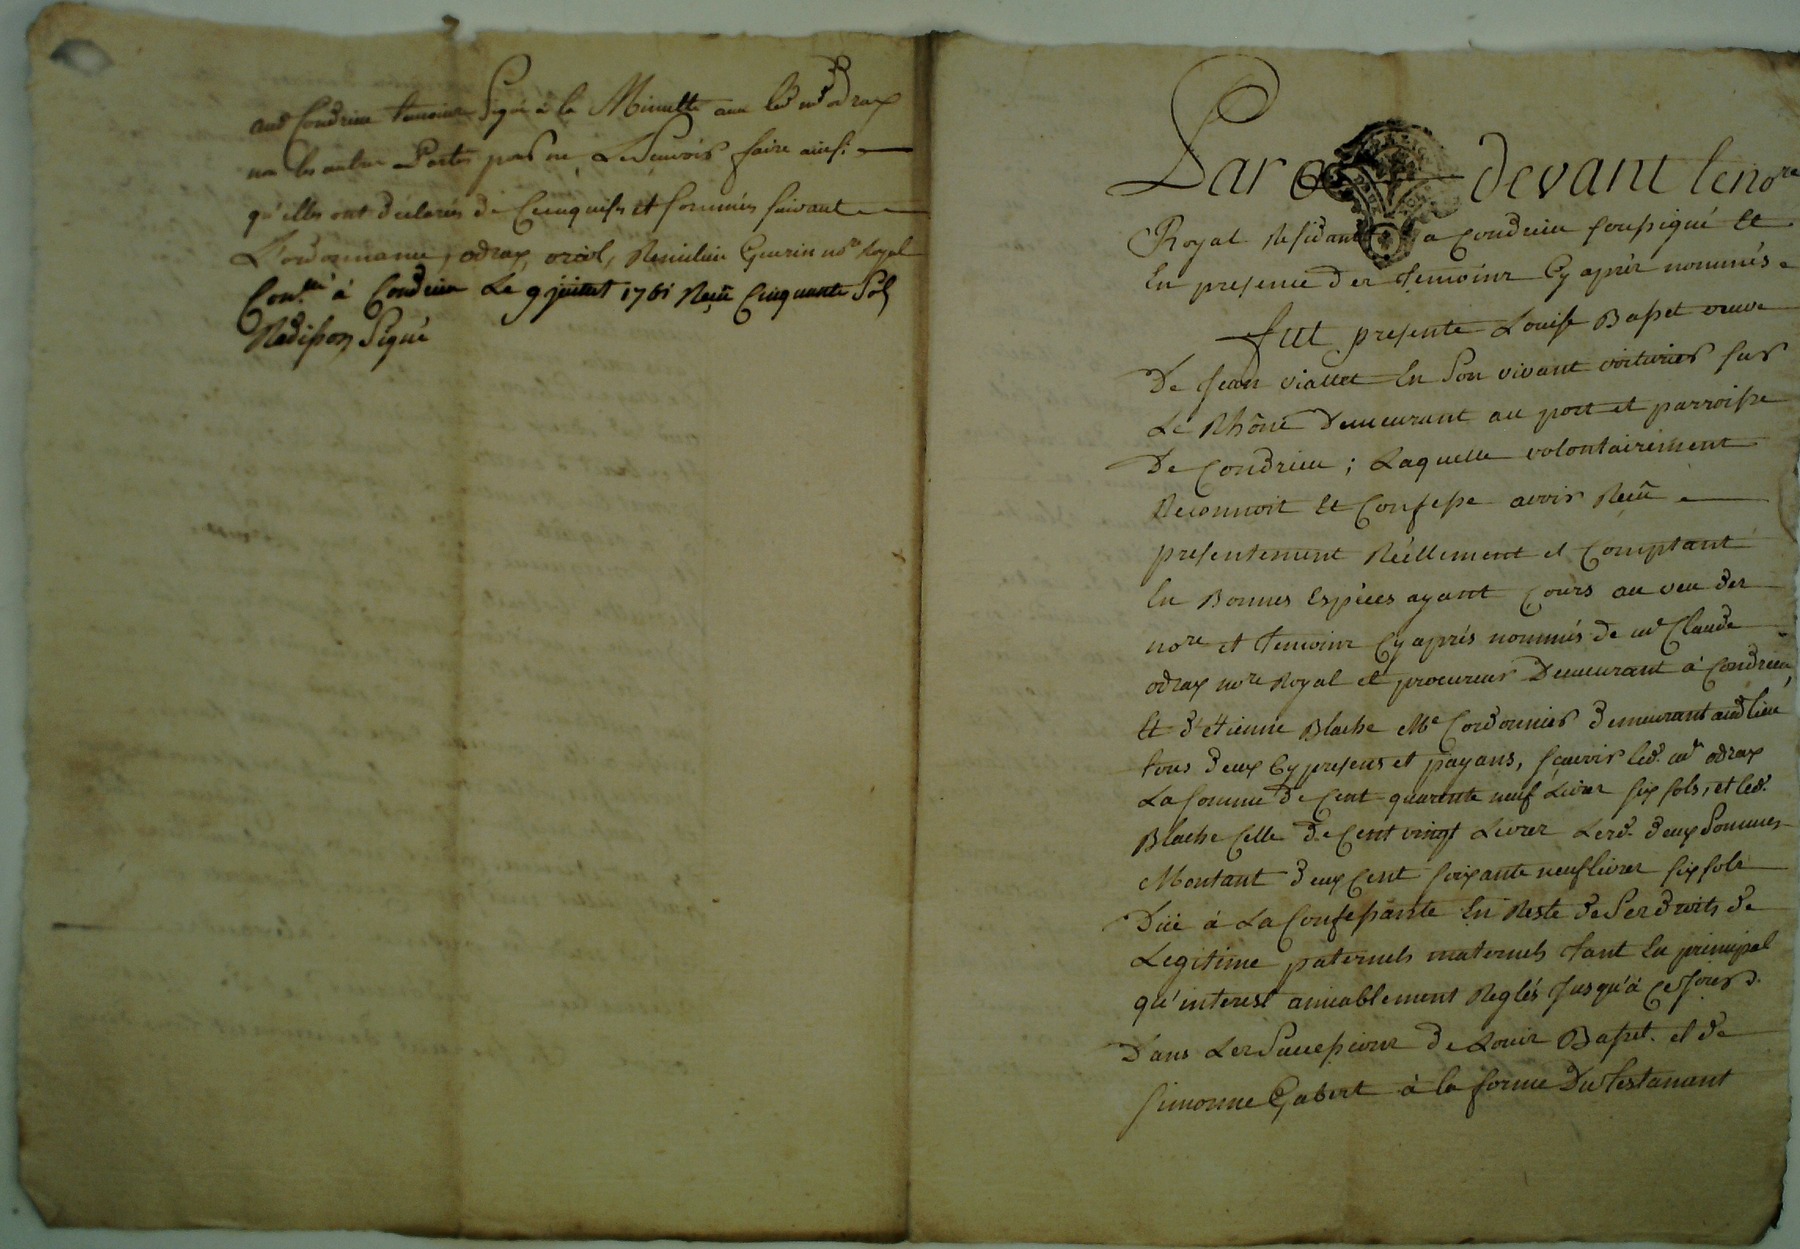 aud Condrieu temoins Signé à la Minutte avec led. me odrax
non les autres Parties pour ne Le Scavoir faire ainsi
qu'elles ont déclarés de Ce enquises et sommées suivant
L'ordonnance, odrax, oriol, Guerin nore Royal
Conllé à Condrieu Le 9 juillet 1761 Reçu Cinquante Sols
Radisson Signé
Par devant le nore
Royal Residant a Condrieu soussigné Et
En presence des temoins Cy après nommés
fut presente Louise Basset veuve
De Jean viallet En Son vivant voiturier sur
Le Rhône Demeurant au port et parroisse
De Condrieu ; Laquelle volontairement
Reconnoit Et Confesse avoir Reçu
presentement Réellement et Comptant
En Bonnes Espèces ayant Cours au veu des
nore et temoins Cy aprés nommés de me Claude
odrax nore Royal et procureur Demeurant à Condrieu,
Et d'étienne Blache Me Cordonnier demeurant aud lieu
tous deux Cy presens et payans, sçavoir led. me odrax
La somme de Cent quarente neuf Livres six sols, et led.
Blache Celle de Cent vingt Livres Lesd. deux Sommes
Montant deux Cent soixante neuf livres six sols
Düe à La Confessante En Reste de Ses droits de
Legitime paternels maternels tant En principal
qu'interest amiablement Reglés Jusqu'à Ce Jour
Dans Les Successions de Louis Basset et de
simonne Gabert à la forme Du testamant